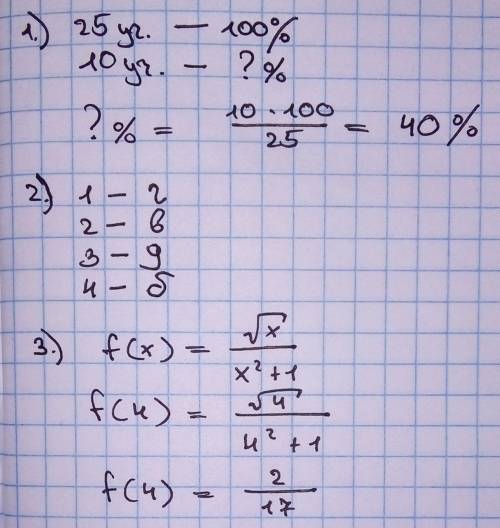 1.) 25 уч. — 100%
10 уч. — ?%
?% = 10 · 100 / 25 = 40%
2.) 1 – г
2 – в
3 – д
4 – б
3.) f(x) = √x / x² + 1
f(4) = √4 / 4² + 1
f(4) = 2 / 17